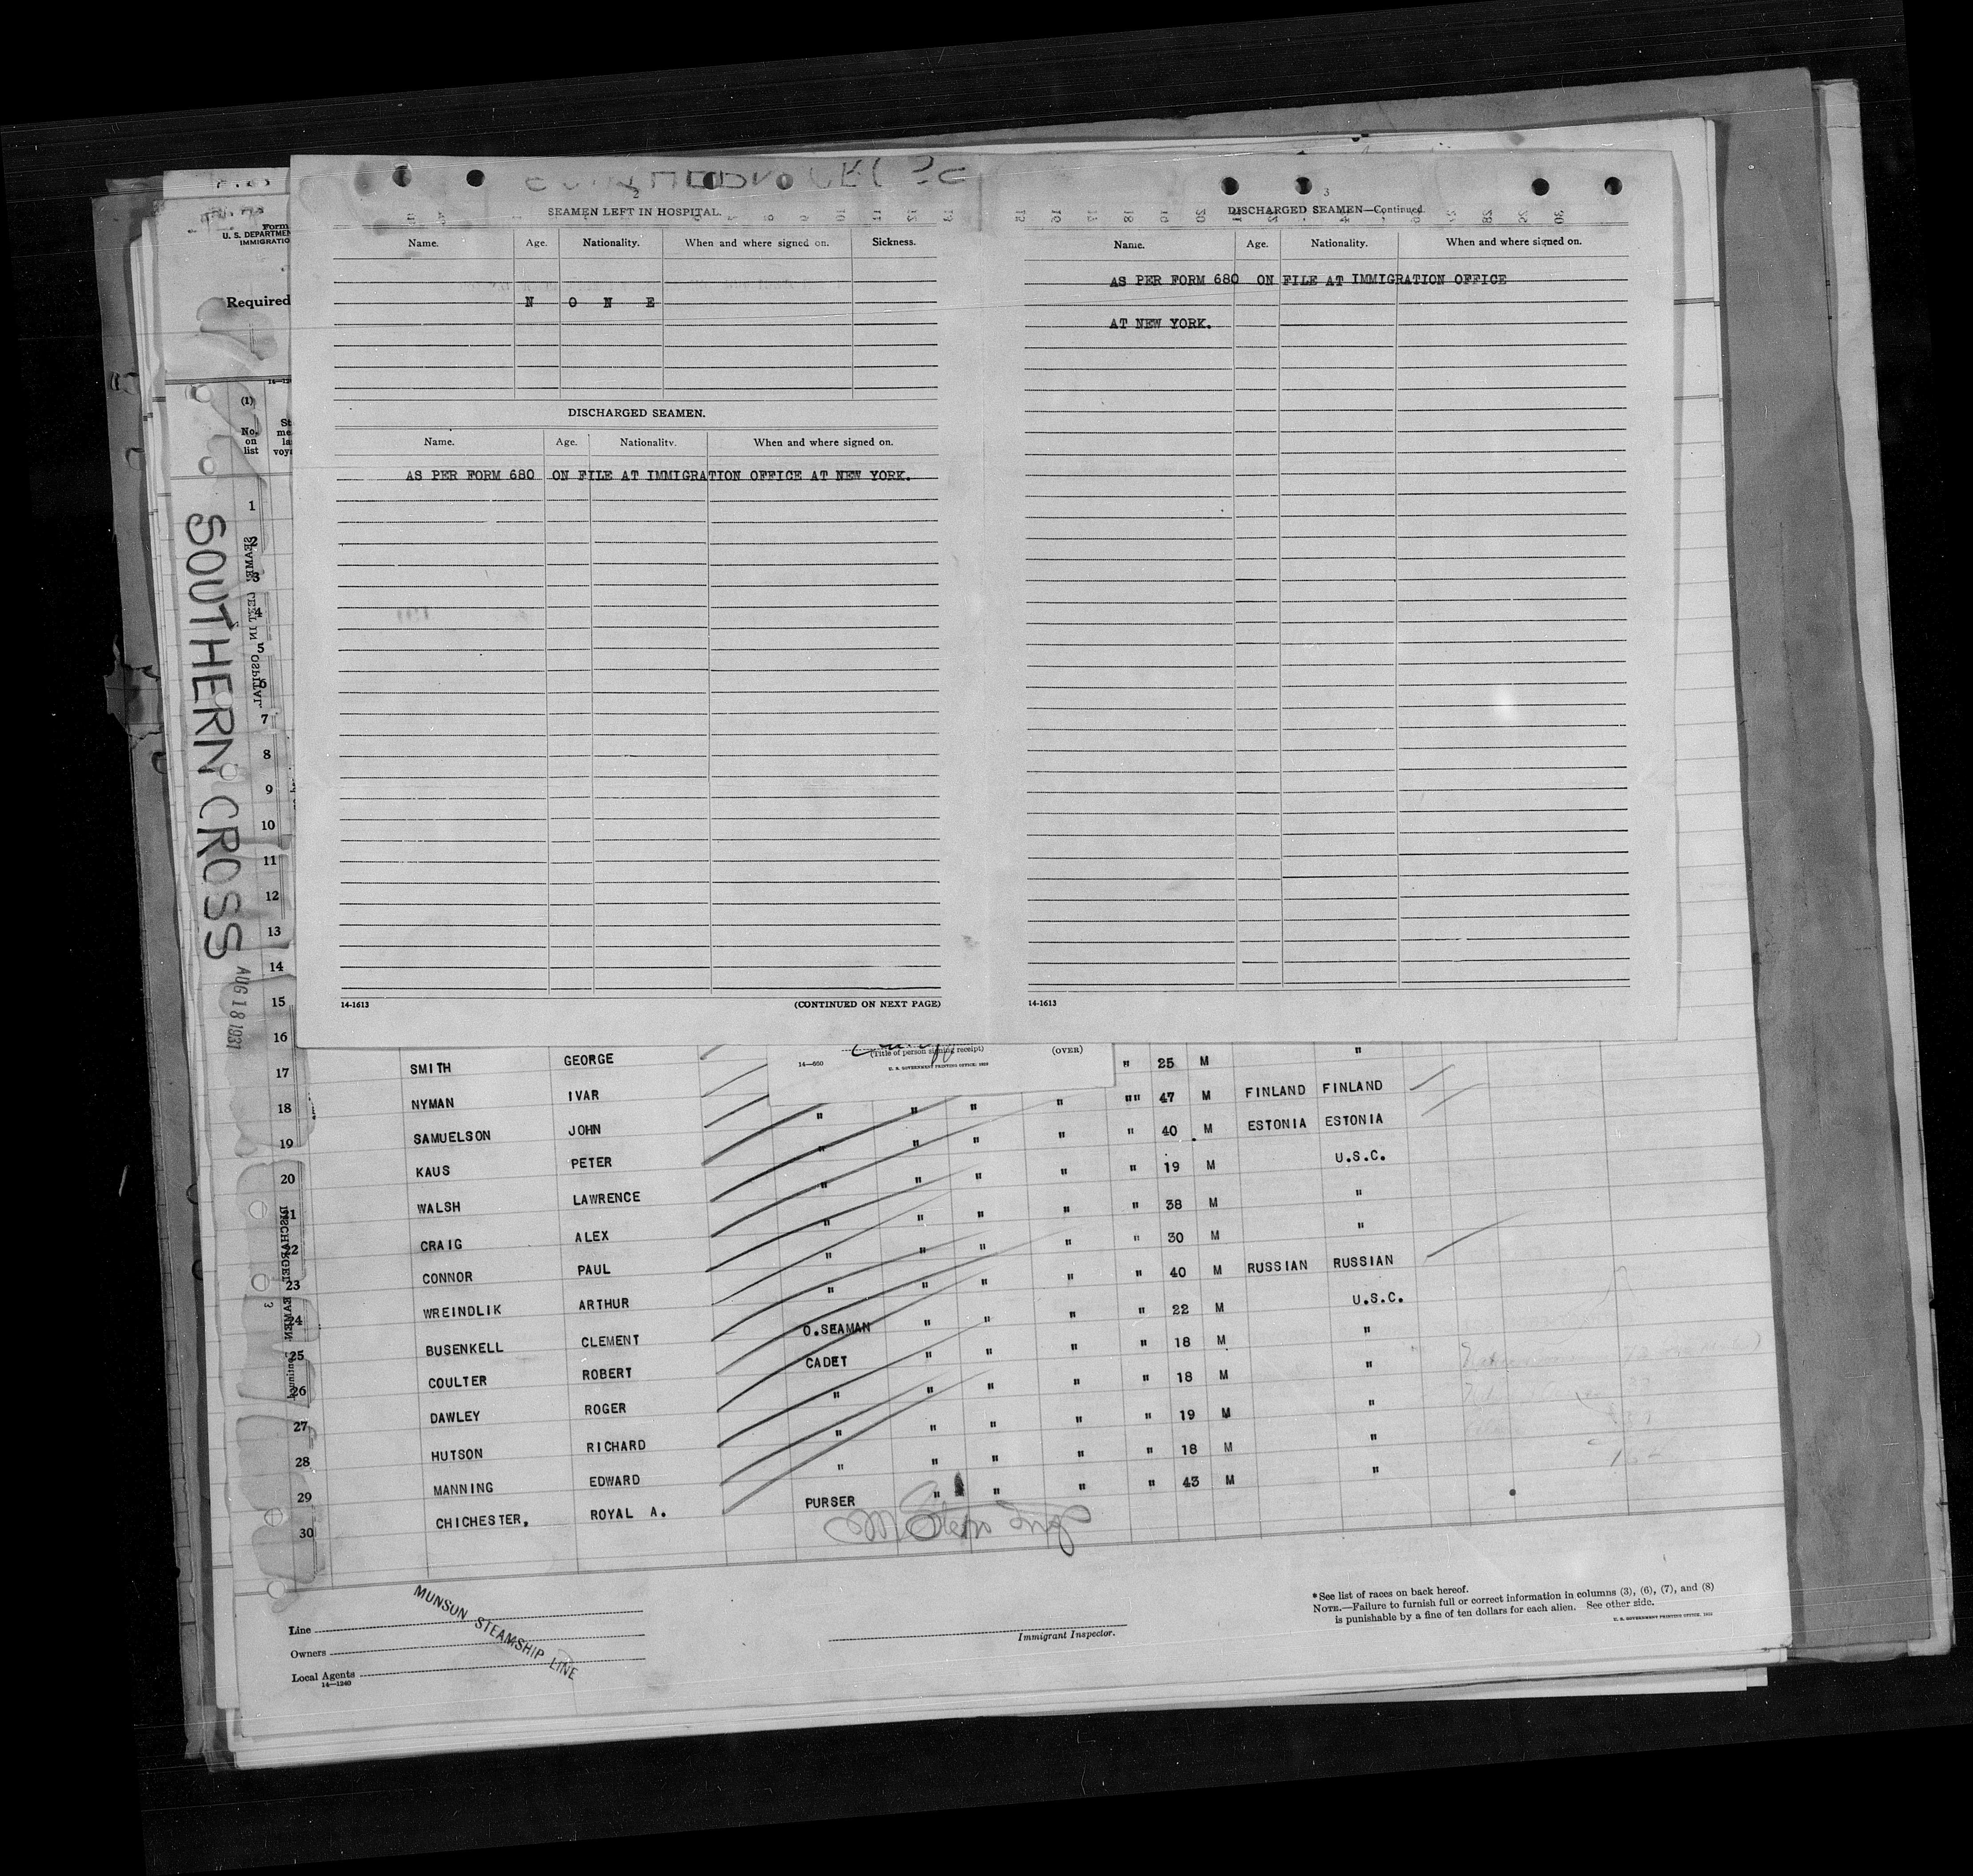 2
SEAMEN LEFT IN HOSPITAL.
Name. Age. Nationality. When and where signed on. Sickness.
N O N E
DISCHARGED SEAMEN.
Name. Age. Nationality. When and where signed on.
AS PER FORM 680 ON FILE AT IMMIGRATION OFFICE AT NEW YORK.
14-1613 (CONTINUED ON NEXT PAGE)
3
DISCHARGED SEAMEN—Continued.
Name. Age. Nationality. When and where signed on.
AS PER FORM 680 ON FILE AT IMMIGRATION OFFICE
AT NEW YORK.
14-1613
Form
U. S. DEPARTMEN
IMMIGRATIO
Required
(1)
No.
on
list
St
me
la
voya
SOUTHERN CROSS
AUG 18 1931
SEAMEN LEFT IN OSPITAL.
1
2
3
4
5
6
7
8
9
10
11
12
13
14
15
16
17
18
19
20
21
22
23
24
25
26
27
28
29
30
(Title of person signing receipt) (OVER)
14—660 U. S. GOVERNMENT PRINTING OFFICE:
SMITH GEORGE " 25 M "
NYMAN IVAR " " " " "" 47 M FINLAND FINLAND
SAMUELSON JOHN " " " " " 40 M ESTONIA ESTONIA
KAUS PETER " " " " " 19 M U.S.C.
WALSH LAWRENCE " " " " " 38 M "
CRAIG ALEX " " " " " 30 M "
CONNOR PAUL " " " " " 40 M RUSSIAN RUSSIAN
WREINDLIK ARTHUR O.SEAMAN " " " " 22 M U.S.C.
BUSENKELL CLEMENT CADET " " " " 18 M "
COULTER ROBERT " " " " " 18 M "
DAWLEY ROGER " " " " " 19 M "
HUTSON RICHARD " " " " " 18 M "
MANNING EDWARD PURSER " " " " 43 M "
CHICHESTER, ROYAL A.
Line
Owners
Local Agents
14—1240
MUNSON STEAMSHIP LINE
Immigrant Inspector.
*See list of races on back hereof.
NOTE.—Failure to furnish full or correct information in columns (3), (6), (7), and (8)
is punishable by a fine of ten dollars for each alien. See other side.
U. S. GOVERNMENT PRINTING OFFICE.